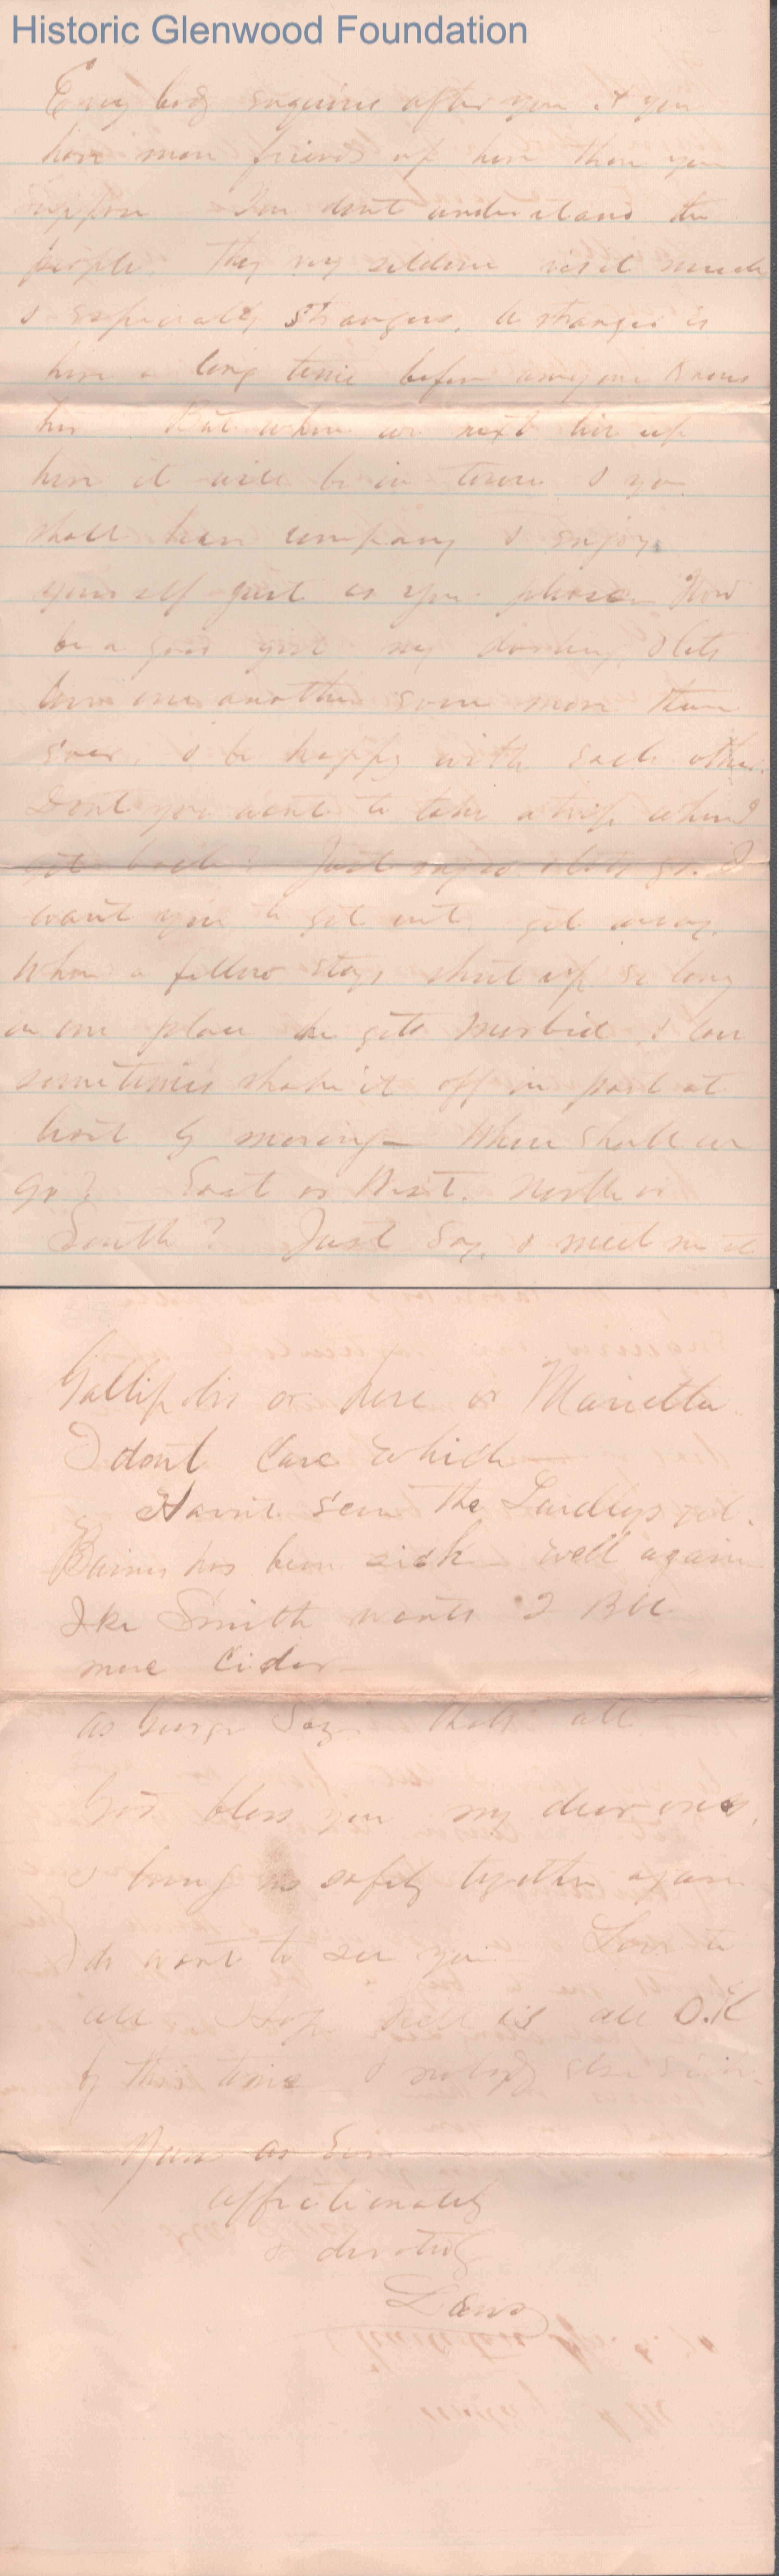 Historic Glenwood Foundation
Every body enquires after you & you
have more friends up here than you
suppose You dont understand the
people. They very seldom visit much
& especially strangers. A stranger is
here a long time before anyone knows
her. But when we next live up
here it will be in town & you
shall have company & enjoy
yourself just as you please Now
be a good girl my darling, & lets
love one another even more than
ever, & be happy with each other.
Dont you want to take a trip when I
get back? Just say so & lets go. I
want you to get out, get away.
When a fellow stays shut up so long
in one place he gets morbid, & can
sometimes shake it off in part at
least by moving — Where shall we
go? East or West. North or
South? Just say, & meet me at
Gallipolis or here or Marietta
I dont care which —
Havnt seen the Laidleys yet.
has been sick — well again
Ike Smith wants 2 Bbl
more Cider —
As George Says thats all
God bless you my dear ones,
& bring us safely together again
I do want to see you Love to
all Hope Nell is all O.K
by this time & nobody else
Yours as Ever
affectionately
& devotedly
Lewis